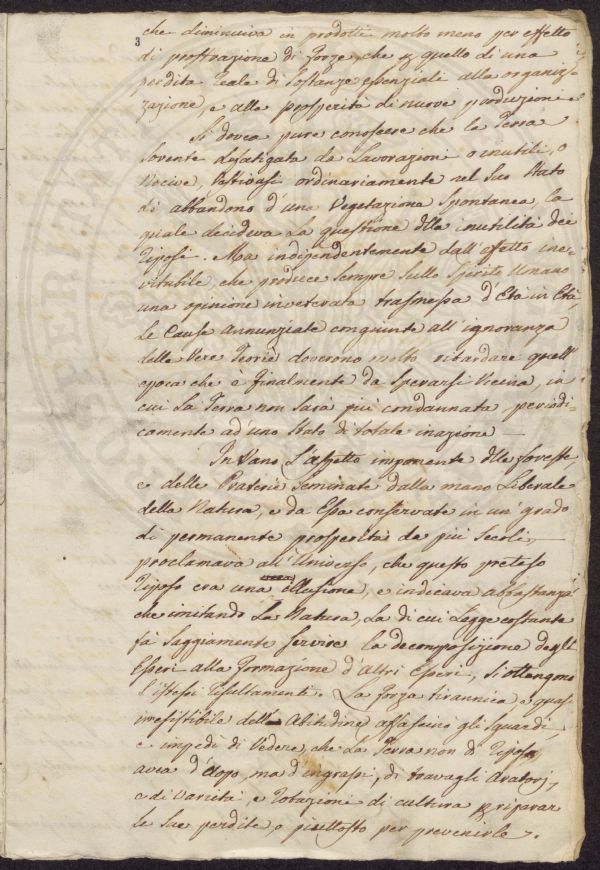 3
che diminuiva in prodotti molto meno per effetto
di prostrazione di forze, che p quello di una
perdita reale di sostanze essenziali alla organiz-
zazione, e alle prosperità di nuove produzioni.
Si dovea pure conoscere che la Terra
sovente defatigata da Lavorazioni o inutili, o
Nocive, Vestivasi ordinariamente nel suo Stato
di abbandono d'una Vegetazione Spontanea, la
quale decideva La questione dlla inutilità dei
riposi. Ma indipendentemente dall'effetto ine-
vitabile, che produce sempre sullo Spirito Umano
una opinione inveterata trasmessa d'Età in Età,
Le Cause Annunziate congiunte all'ignoranza
delle Vere Teorie doverono molto ritardare quell'
epoca che è finalmente da Sperarsi Vicina, in
cui La Terra non Sarà più condannata, periodi-
camente ad'uno Stato di totale inazione —
In Vano L'aspetto imponente dlle foreste,
e delle Praterie Seminate dalla mano Liberale
della Natura, e da Essa conservate in un grado
di permanente prosperità da più Secoli,
proclamava all'Universo, che questo preteso
riposo era una illusione, e indicava abbastanza
che imitando La Natura, La di cui Legge costante
fà Saggiamente servire la decomposizione degli
Esseri alla formazione d'altri Esseri, Si ottengono
l'istessi resultamenti. La forza tirannica, e quasi
irresistibile dell' Abitudine affascinò gli Sguardi,
e impedì di Vedere, che La Terra non di riposo
avea d'uopo, ma d'ingrassi, di travagli Aratorj,
e di Varietà, e rotazioni di cultura p riparar
le Sue perdite o piuttosto per prevenirle.